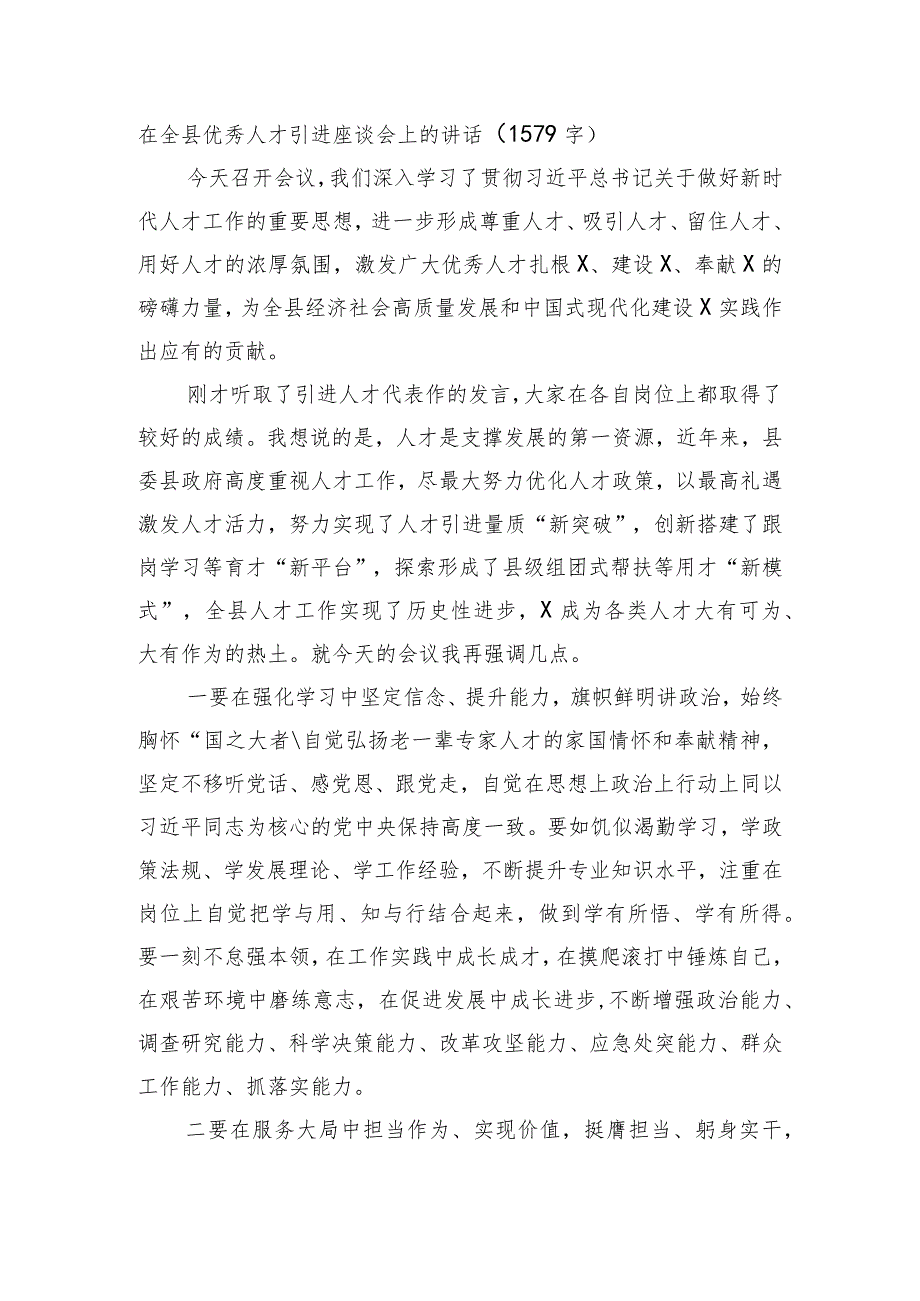 在全县优秀人才引进座谈会上的讲话（1579 字）
今天召开会议,我们深入学习了贯彻习近平总书记关于做好新时
代人才工作的重要思想，进一步形成尊重人才、吸引人才、留住人才、
用好人才的浓厚氛围，激发广大优秀人才扎根 X、建设 X、奉献 X 的
磅礴力量，为全县经济社会高质量发展和中国式现代化建设 X 实践作
出应有的贡献。
刚才听取了引进人才代表作的发言,大家在各自岗位上都取得了
较好的成绩。我想说的是，人才是支撑发展的第一资源，近年来，县
委县政府高度重视人才工作，尽最大努力优化人才政策，以最高礼遇
激发人才活力，努力实现了人才引进量质“新突破”，创新搭建了跟
岗学习等育才“新平台”，探索形成了县级组团式帮扶等用才“新模
式”，全县人才工作实现了历史性进步，X 成为各类人才大有可为、
大有作为的热土。就今天的会议我再强调几点。
一要在强化学习中坚定信念、提升能力，旗帜鲜明讲政治，始终
胸怀“国之大者\自觉弘扬老一辈专家人才的家国情怀和奉献精神，
坚定不移听党话、感党恩、跟党走，自觉在思想上政治上行动上同以
习近平同志为核心的党中央保持高度一致。要如饥似渴勤学习，学政
策法规、学发展理论、学工作经验，不断提升专业知识水平，注重在
岗位上自觉把学与用、知与行结合起来，做到学有所悟、学有所得。
要一刻不怠强本领,在工作实践中成长成才,在摸爬滚打中锤炼自己，
在艰苦环境中磨练意志，在促进发展中成长进步,不断增强政治能力、
调查研究能力、科学决策能力、改革攻坚能力、应急处突能力、群众
工作能力、抓落实能力。
二要在服务大局中担当作为、实现价值，挺膺担当、躬身实干，